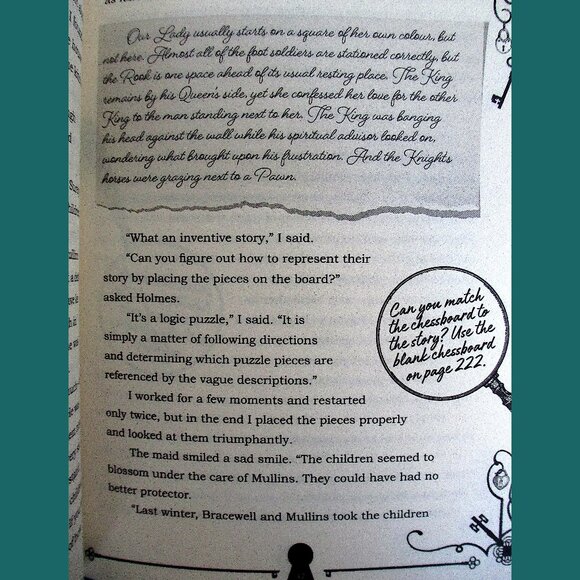 Our Lady usually starts on a square of her own colour, but
not here. Almost all of the foot soldiers are stationed correctly, but
the Rook is one space ahead of its usual resting place. The King
remains by his Queen's side, yet she confessed her love for the other
King to the man standing next to her. The King was banging
his head against the wall while his spiritual advisor looked on,
wondering what brought upon his frustration. And the Knights
horses were grazing next to a Pawn.
"What an inventive story," I said.
"Can you figure out how to represent their
story by placing the pieces on the board?"
asked Holmes.
"It's a logic puzzle," I said. "It is
simply a matter of following directions
and determining which puzzle pieces are
referenced by the vague descriptions."
I worked for a few moments and restarted
only twice, but in the end I placed the pieces properly
and looked at them triumphantly.
The maid smiled a sad smile. "The children seemed to
blossom under the care of Mullins. They could have had no
better protector.
"Last winter, Bracewell and Mullins took the children
Can you match
the chessboard to
the story? Use the
blank chessboard
on page 222.